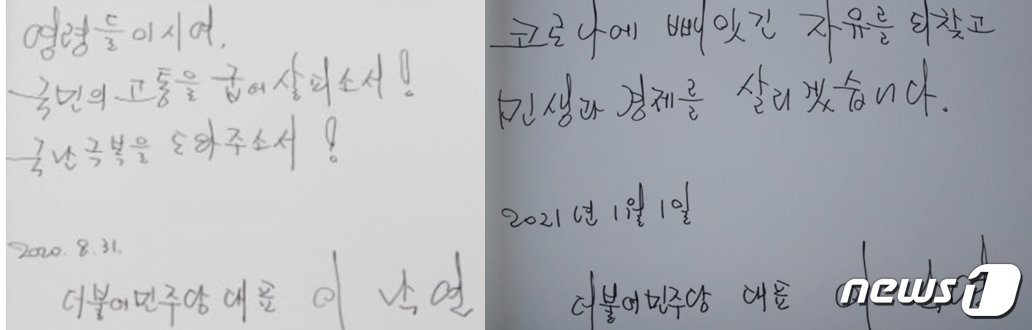 영령들이시여.
국민의 고통을 굽어살피소서!
국난극복을 도와주소서!
2020. 8. 31.
더불어민주당 대표 이 낙 연
코로나에 빼앗긴 자유를 되찾고
민생과 경제를 살리겠습니다.
2021년 1월 1일
더불어민주당 대표 이 낙 연
news1